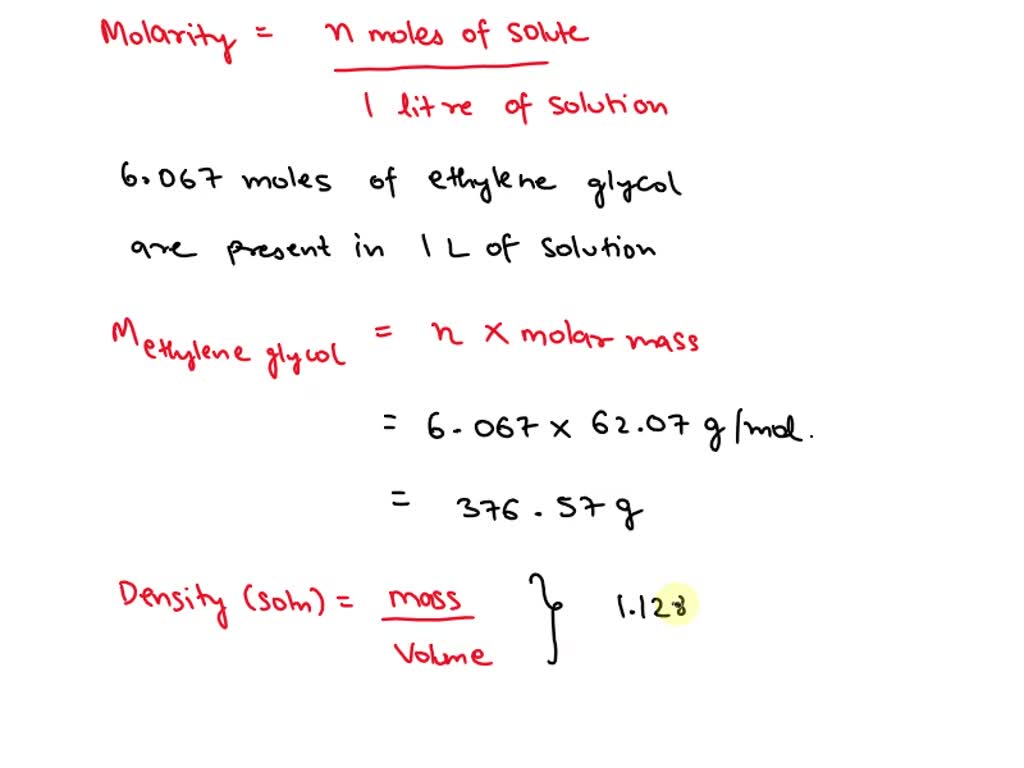 Molarity = n moles of solute
1 litre of solution
6.067 moles of ethylene glycol
are present in 1 L of solution
M ethylene glycol = n × molar mass
= 6.067 × 62.07 g/mol.
= 376.57 g
Density (soln) = mass } 1.128
Volume